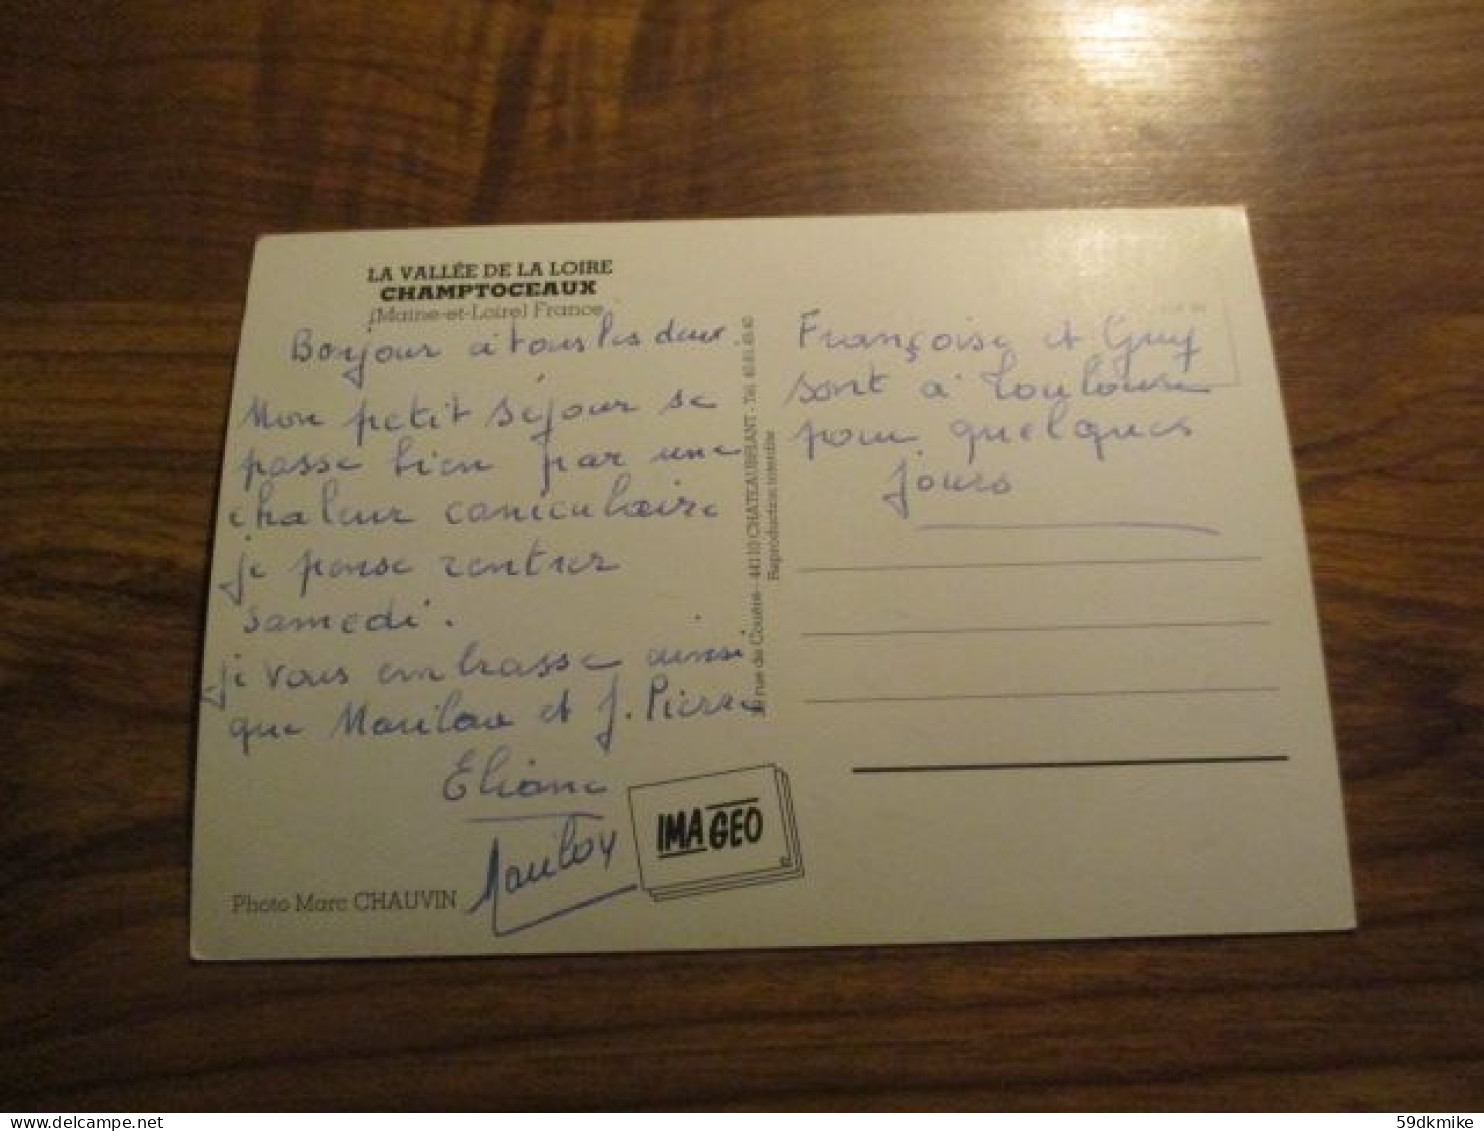 LA VALLÉE DE LA LOIRE
CHAMPTOCEAUX
(Maine-et-Loire) France
Bonjour à tous les deux.
Mon petit séjour se
passe bien par une
chaleur caniculaire
je pense rentrer
samedi.
je vous embrasse ainsi
que et J. Pierre
Eliane
Photo Marc CHAUVIN
IMAGEO
rue de Couëre - 44110 CHATEAUBRIANT - Tél. 40.81.45.40
Reproduction interdite
Françoise et Guy
sont à Toulouse
pour quelques
jours
delcampe.net
59dkmike